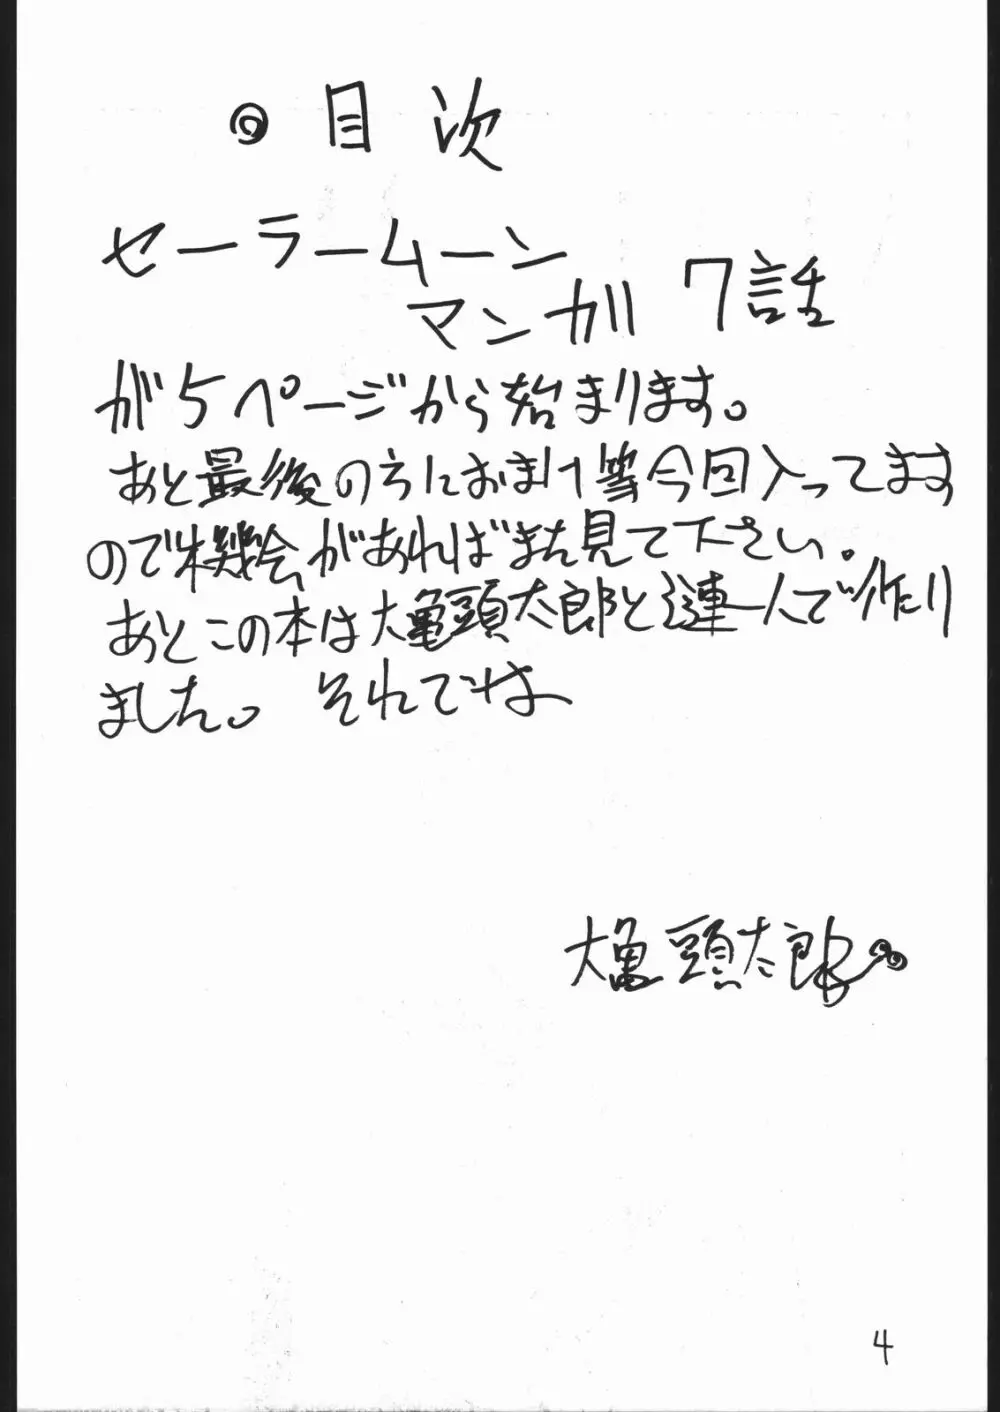 ◎ 目次
セーラームーン
マンガ 7話
が5ページから始まります。
あと最後の方におまけ等今回入ってます
ので機会があればまた見て下さい。
あとこの本は大亀頭太郎と 一人で作り
ました。 それでは
大亀頭太郎
4